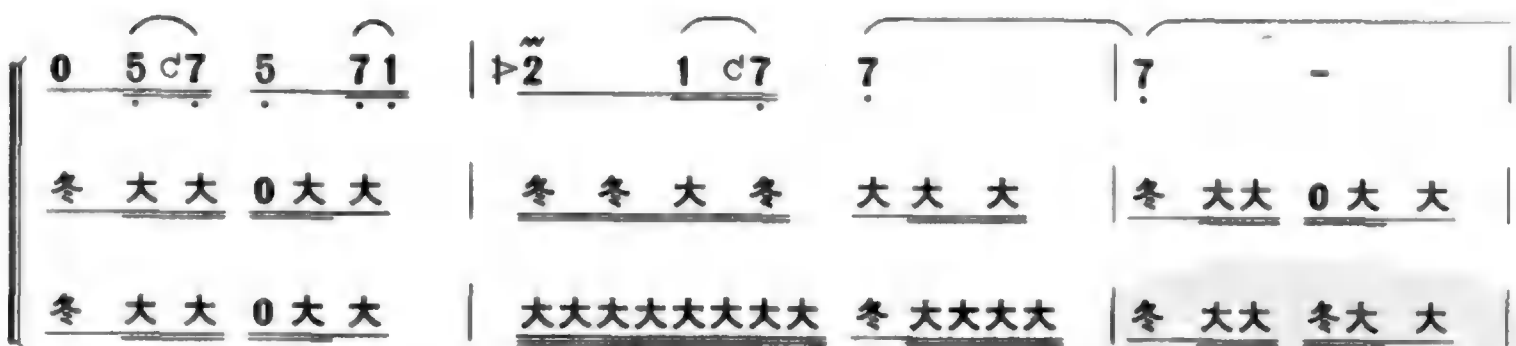 0 5 c 7 5 7 1 | 2 1 c 7 7 | 7 - |
冬 大 大 0 大 大 | 冬 冬 大 冬 大 大 大 | 冬 大 大 0 大 大 |
冬 大 大 0 大 大 | 大 大 大 大 大 大 大 大 冬 大 大 大 大 | 冬 大 大 冬 大 大 |